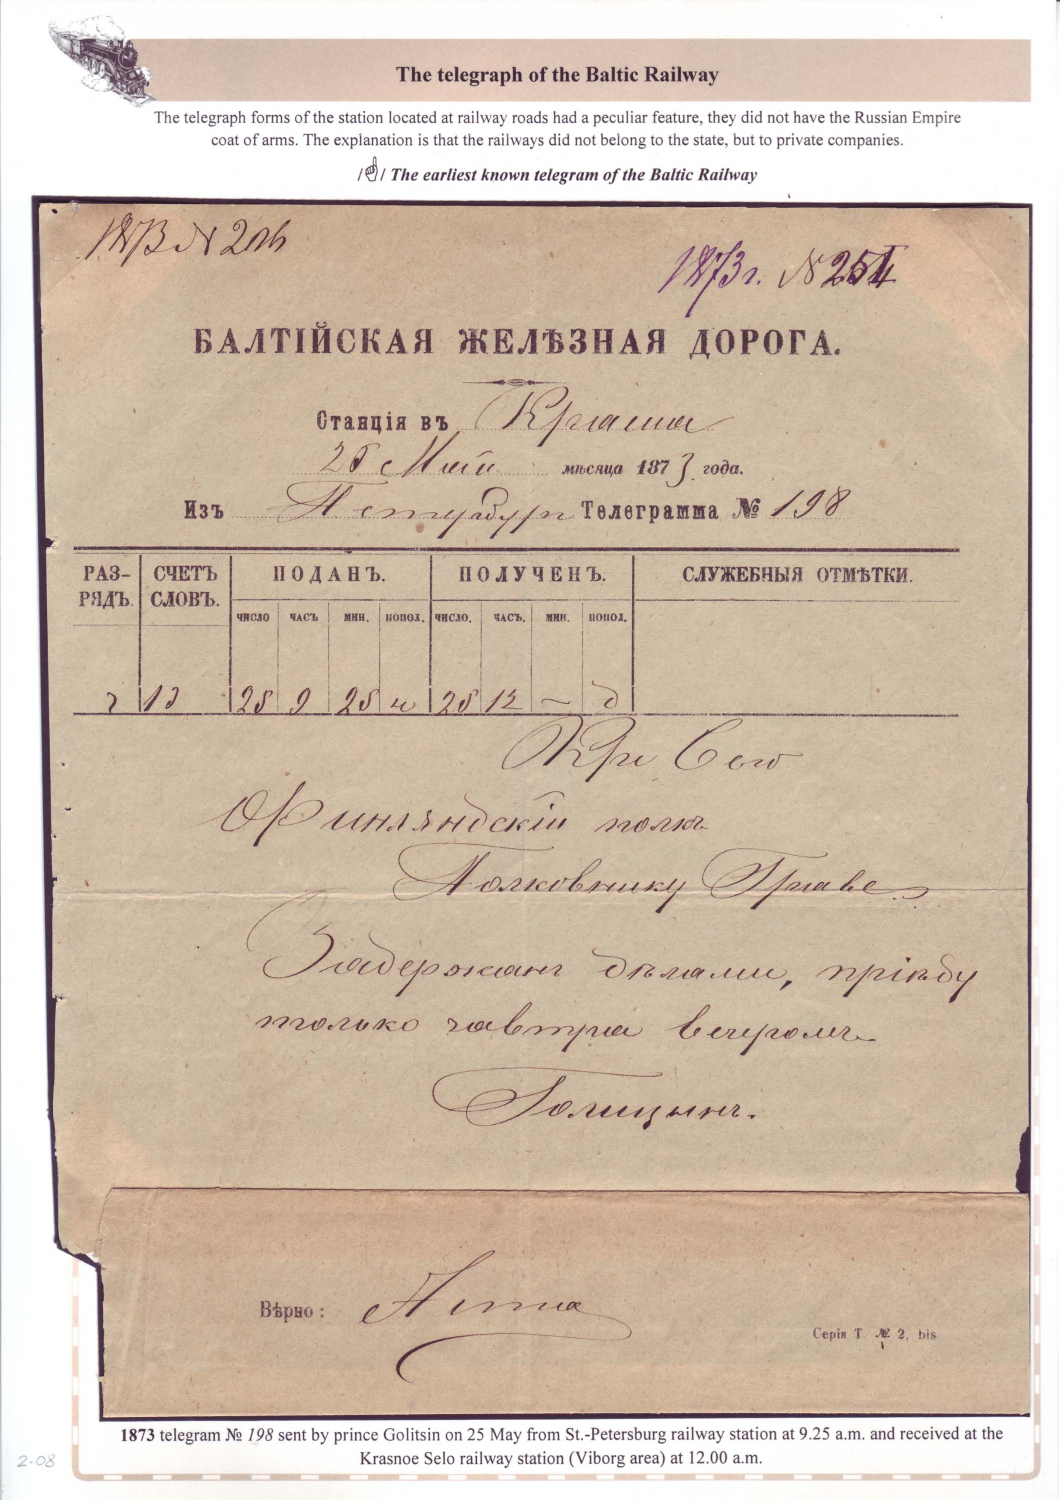 The telegraph of the Baltic Railway
The telegraph forms of the station located at railway roads had a peculiar feature, they did not have the Russian Empire
coat of arms. The explanation is that the railways did not belong to the state, but to private companies.
/☝/ The earliest known telegram of the Baltic Railway
1873 N
1873 г. № 251
БАЛТІЙСКАЯ ЖЕЛѢЗНАЯ ДОРОГА.
Станція въ
25 Мая мѣсяца 1873 года.
Изъ Петербург Телеграмма № 198
РАЗ- СЧЕТЪ ПОДАНЪ. ПОЛУЧЕНЪ. СЛУЖЕБНЫЯ ОТМѢТКИ.
РЯДЪ. СЛОВЪ.
ЧИСЛО ЧАСЪ МИН. ПОПОЛ. ЧИСЛО. ЧАСЪ. МИН. ПОПОЛ.
13 25 9 25 25 12 –
Кр Село
Финляндскій полкъ
Полковнику Граве
Задержанъ дѣлами, пріѣду
только завтра вечеромъ
Голицынъ.
Вѣрно:
Серія Т. № 2, bis
1873 telegram № 198 sent by prince Golitsin on 25 May from St.-Petersburg railway station at 9.25 a.m. and received at the
Krasnoe Selo railway station (Viborg area) at 12.00 a.m.
2-08